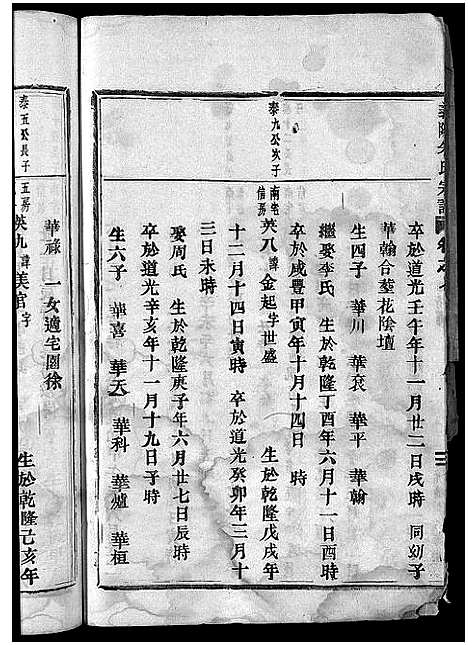 卒於道光壬午年十一月廿二日戌時 同幼子
華翰合葬花陰壇
生四子 華川 華袞 華平 華翰
繼娶李氏 生於乾隆丁酉年六月十一日酉時
卒於咸豐甲寅年十月十四日 時
泰九公次子 南宅信房 英八諱金起字世盛 生於乾隆戊戌年
十二月十四日寅時 卒於道光癸卯年三月十
三日未時
娶周氏 生於乾隆庚子年六月廿七日辰時
卒於道光辛亥年十一月十九日子時
生六子 華喜 華天 華科 華爐 華桓
華祿 一女適宅園徐
泰五公長子 五房 英九諱美官字 生於乾隆己亥年